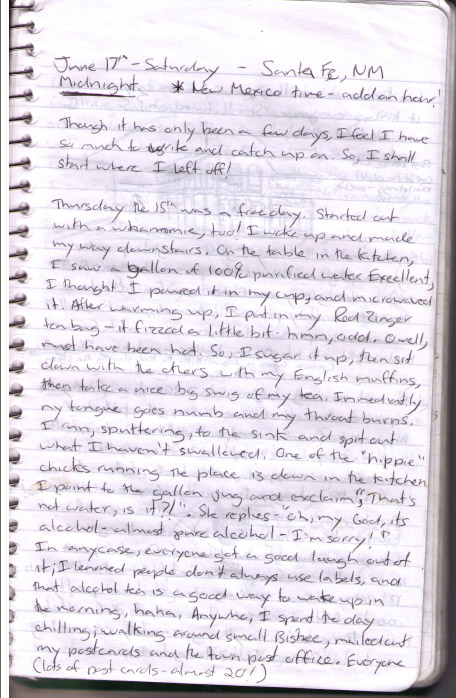 June 17th - Saturday - Santa Fe, NM
Midnight. * New Mexico time - add an hour!
Though it has only been a few days, I feel I have
so much to write and catch up on. So, I shall
start where I left off!
Thursday the 15th was a free day. Started out
with a whammie, too! I woke up and made
my way downstairs. On the table in the kitchen,
I saw a gallon of 100% purified water. Excellent,
I thought I poured it in my cup, and microwaved
it. After warming up, I put in my Red Zinger
tea bag - it fizzed a little bit - hmn, odd. O well,
must have been hot. So, I sugar it up, then sit
down with the others with my English muffins,
then take a nice big swig of my tea. Immediatly
my tongue goes numb and my throat burns.
I run, sputtering, to the sink and spit out
what I haven't swallowed. One of the "hippie"
chicks running the place is down in the kitchen.
I point to the gallon jug and exclaim, "That's
not water, is it?!" She replies - "oh, my God, its
alcohol - almost pure alcohol - I'm sorry!"
In anycase, everyone got a good laugh out of
it; I learned people don't always use labels, and
that alcohol tea is a good way to wake up in
the morning, haha. Anywho, I spent the day
chilling; walking around small Bisbee, mailed out
my postcards and the town post office. Everyone
(lots of post cards - almost 20!)